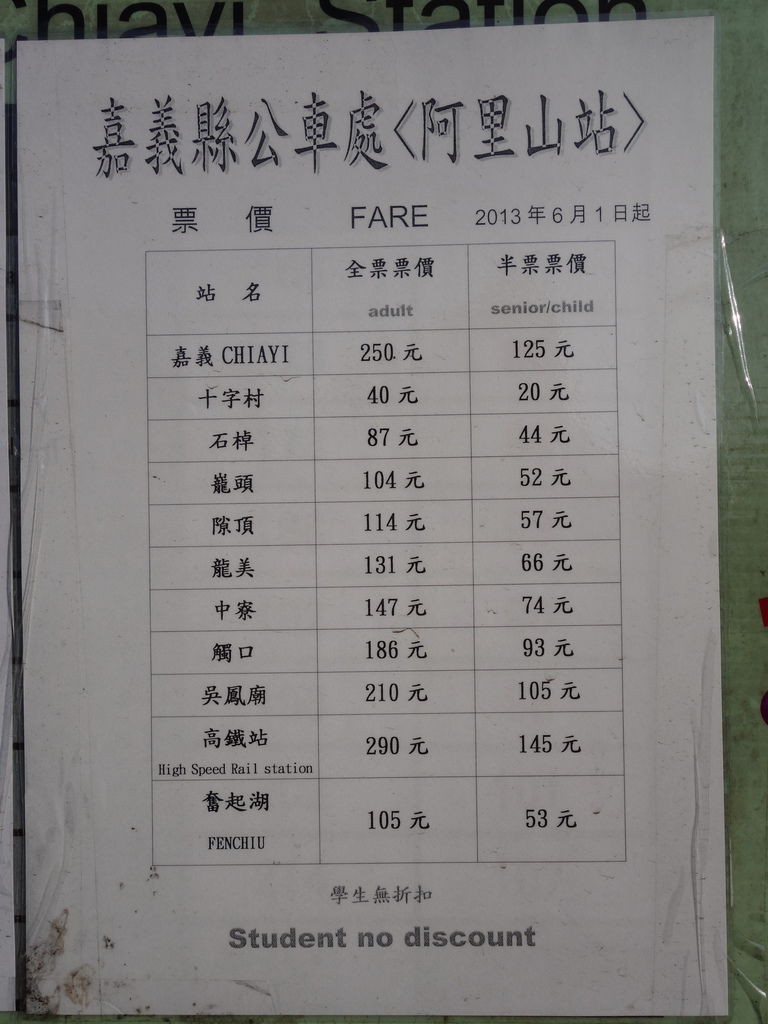 Chiayi Station
嘉義縣公車處<阿里山站>
票 價 FARE 2013年6月1日起
站 名 全票票價 adult 半票票價 senior/child
嘉義 CHIAYI 250 元 125 元
十字村 40 元 20 元
石棹 87 元 44 元
巃頭 104 元 52 元
隙頂 114 元 57 元
龍美 131 元 66 元
中寮 147 元 74 元
觸口 186 元 93 元
吳鳳廟 210 元 105 元
高鐵站 High Speed Rail station 290 元 145 元
奮起湖 FENCHIU 105 元 53 元
學生無折扣
Student no discount